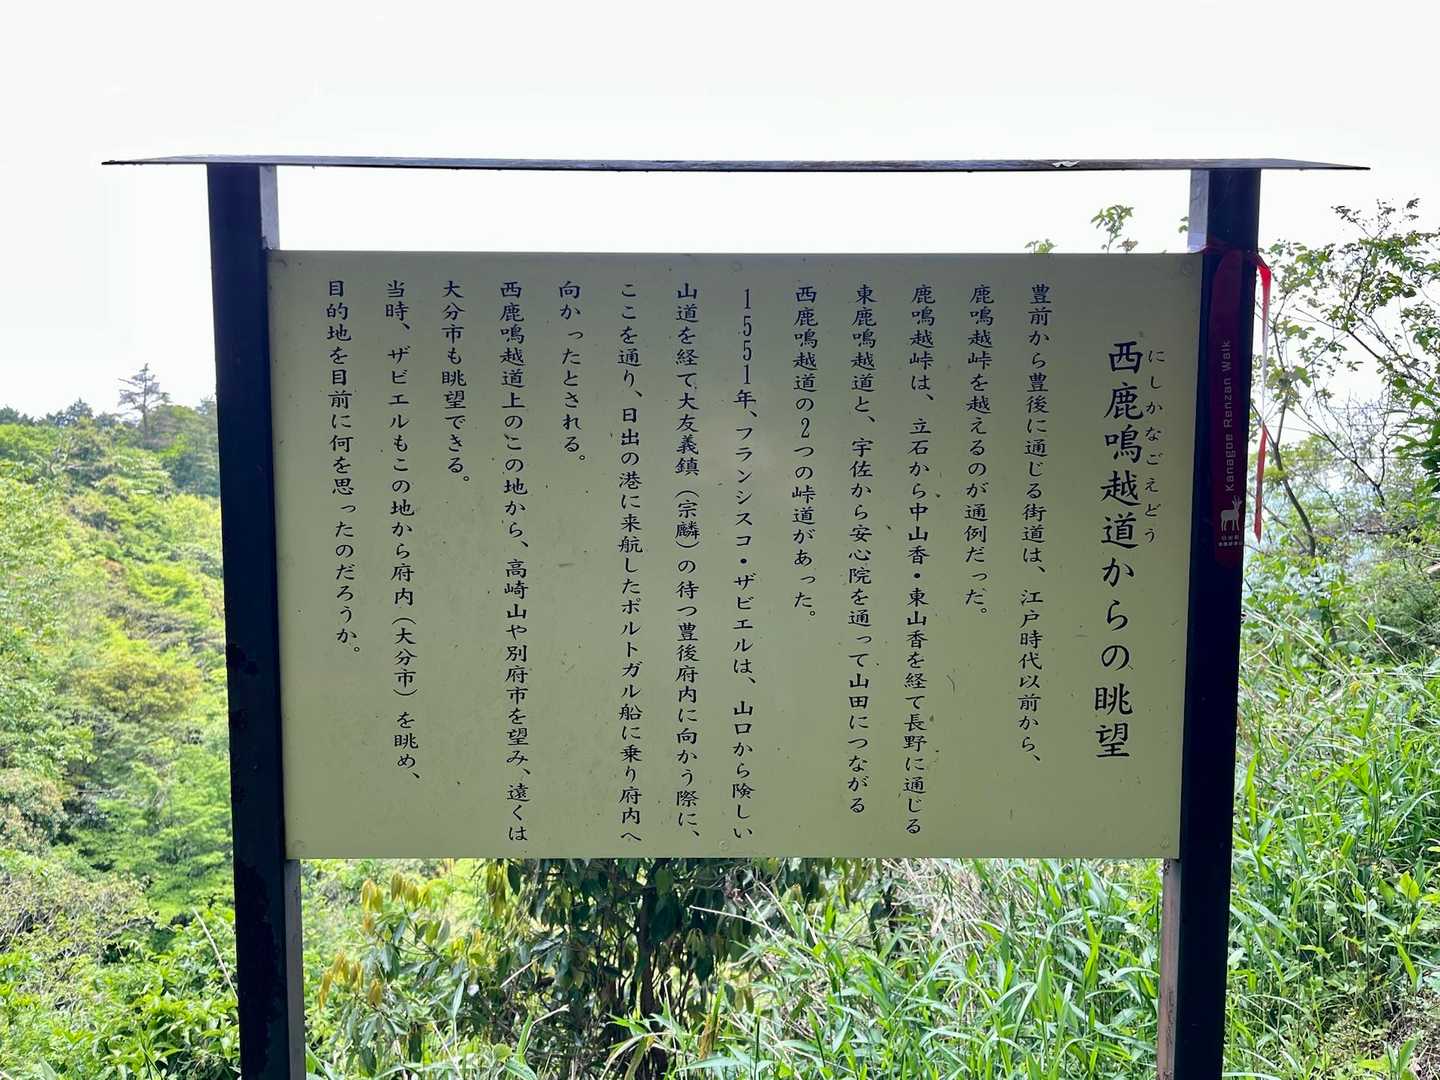 にしかなごえどう
西鹿鳴越道からの眺望
豊前から豊後に通じる街道は、江戸時代以前から、
鹿鳴越峠を越えるのが通例だった。
鹿鳴越峠は、立石から中山香・東山香を経て長野に通じる
東鹿鳴越道と、宇佐から安心院を通って山田につながる
西鹿鳴越道の2つの峠道があった。
1551年、フランシスコ・ザビエルは、山口から険しい
山道を経て、大友義鎮（宗麟）の待つ豊後府内に向かう際に、
ここを通り、日出の港に来航したポルトガル船に乗り府内へ
向かったとされる。
西鹿鳴越道上のこの地から、高崎山や別府市を望み、遠くは
大分市も眺望できる。
当時、ザビエルもこの地から府内（大分市）を眺め、
目的地を目前に何を思ったのだろうか。
Kanagoe Renzan Walk